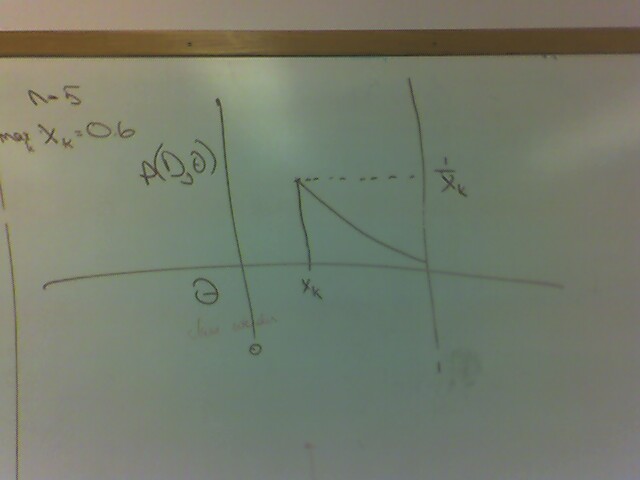 n=5
max_k X_k = 0.6
P(D,Θ)
1/X_k
Θ
X_k
0
1